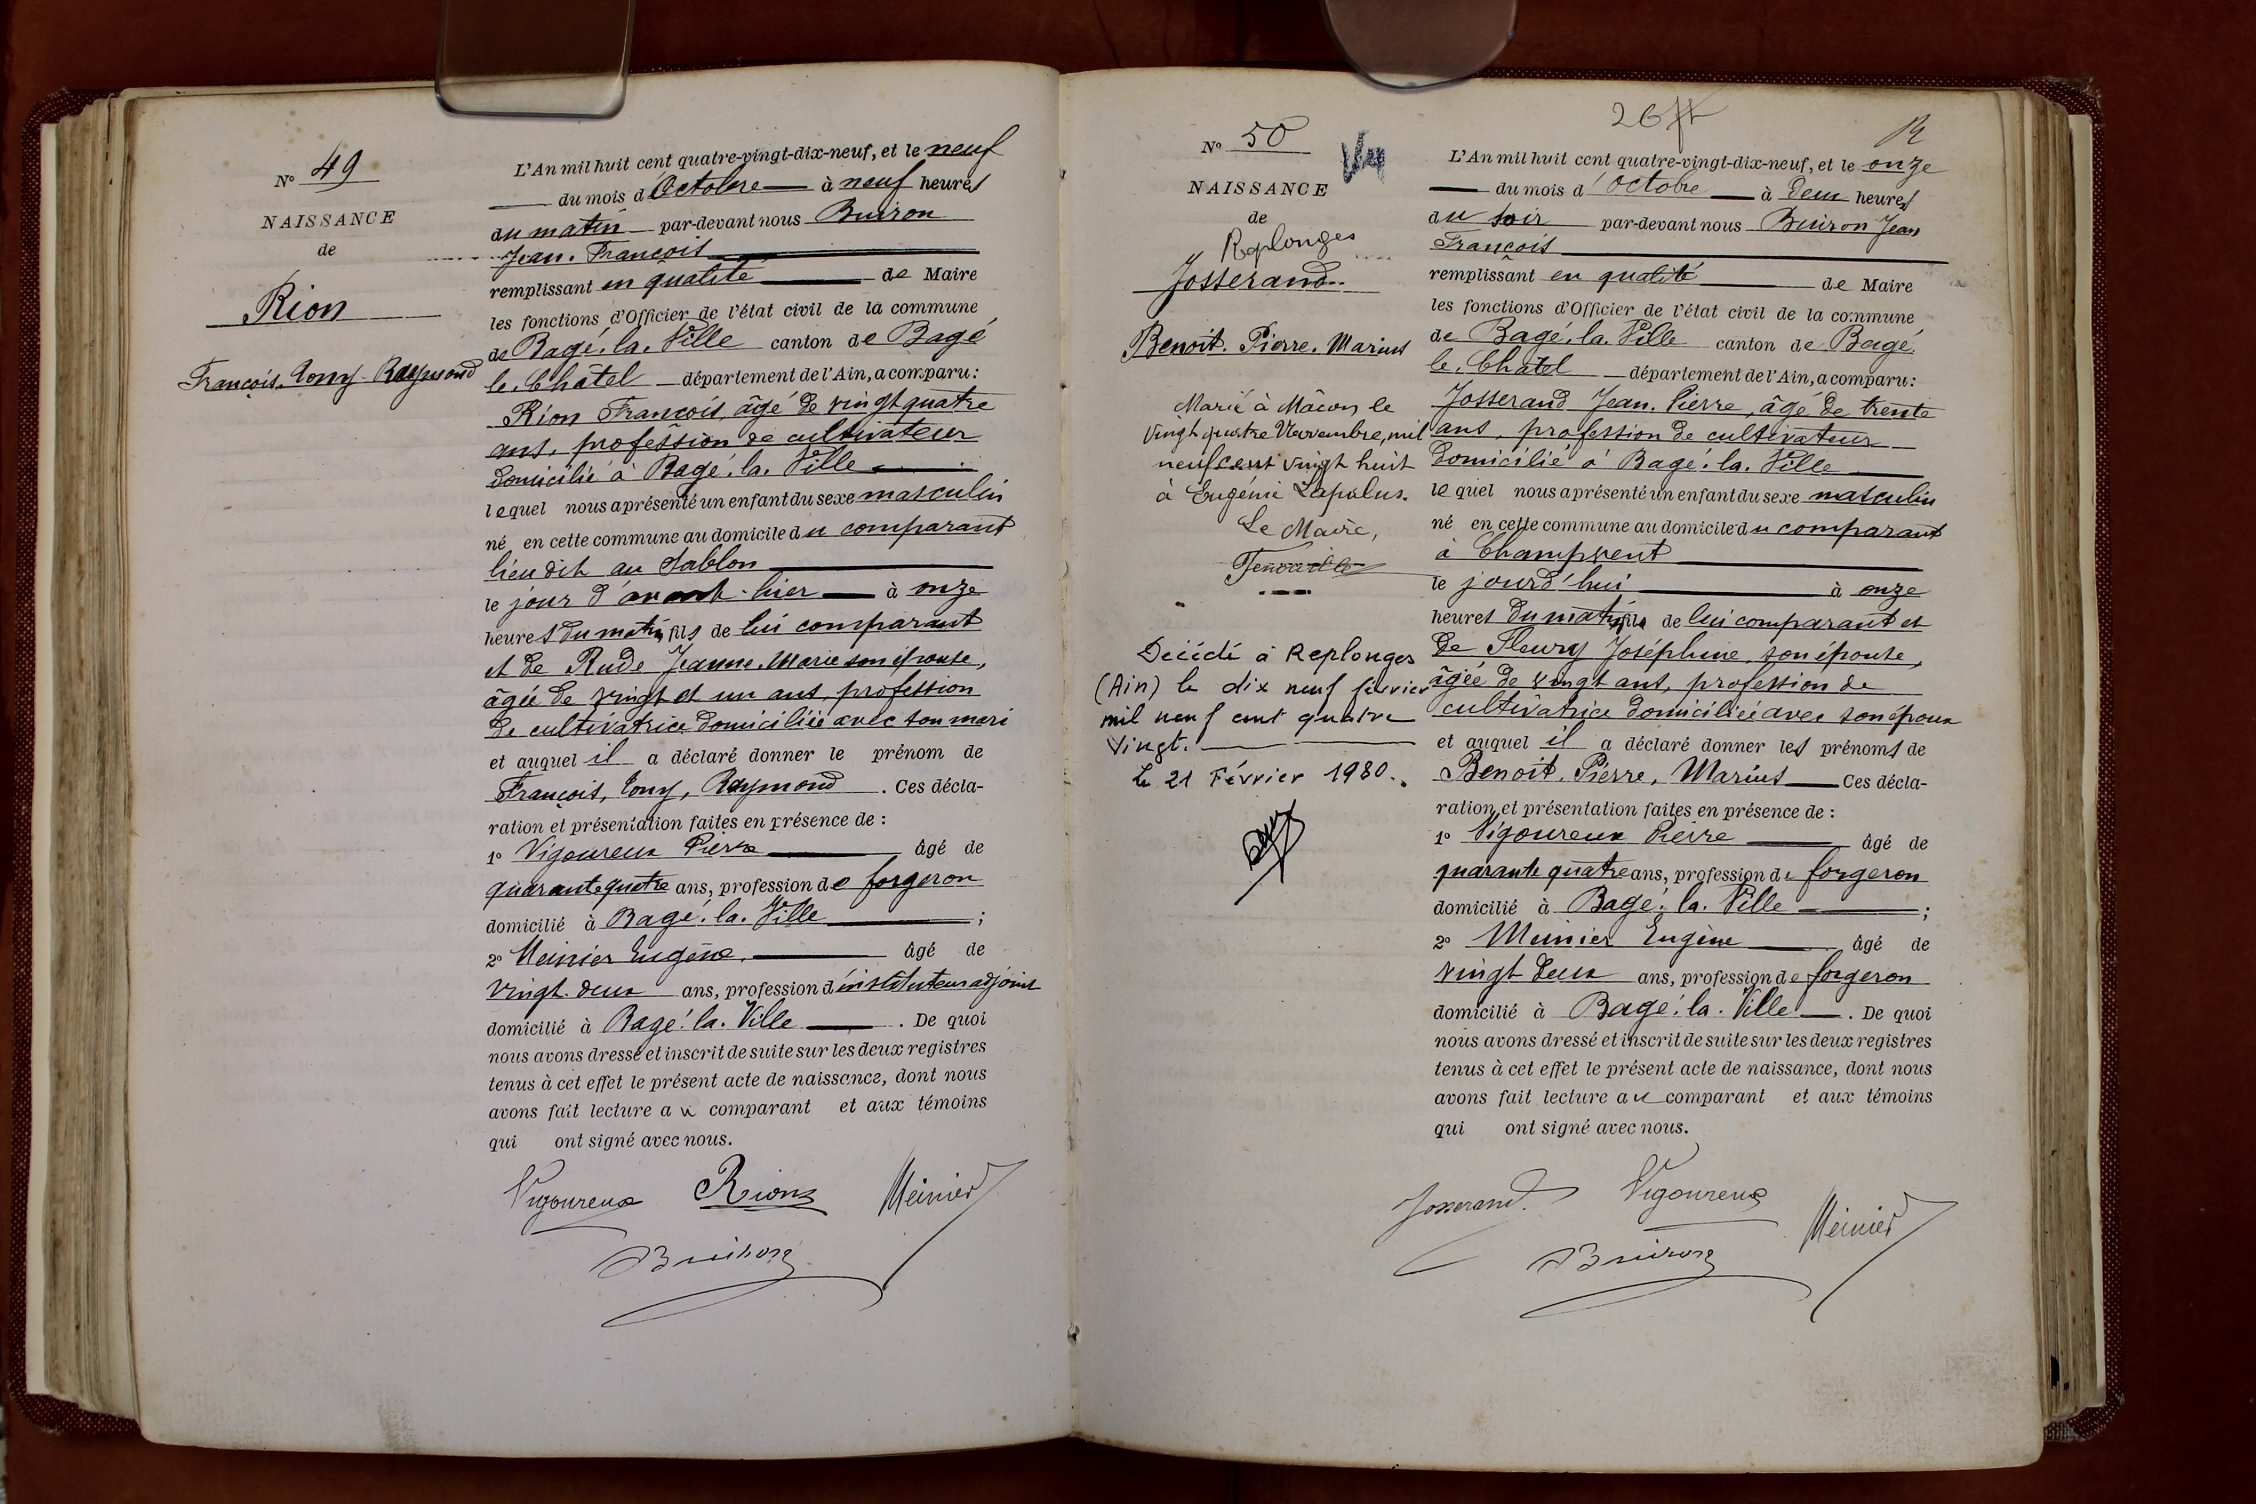 N° 49
NAISSANCE
de
Rion
François, Tony Raymond
L'An mil huit cent quatre-vingt-dix-neuf, et le neuf
du mois d'Octobre à neuf heures
du matin par-devant nous Buiron
Jean. François
remplissant en qualité de Maire
les fonctions d'Officier de l'état civil de la commune
de Bagé. la. Ville canton de Bagé
le. Châtel département de l'Ain, a comparu:
Rion François, âgé de vingt quatre
ans, profession de cultivateur
domicilié à Bagé. la. Ville
lequel nous a présenté un enfant du sexe masculin
né en cette commune au domicile du comparant
lieu dit au Sablon
le jour d'avant-hier à onze
heures du matin fils de lui comparant
et de Rude Jeanne. Marie son épouse,
âgée de vingt et un ans, profession
de cultivatrice domiciliée avec son mari
et auquel il a déclaré donner le prénom de
François, Tony, Raymond. Ces décla-
ration et présentation faites en présence de :
1° Vigoureux Pierre âgé de
quarante quatre ans, profession de forgeron
domicilié à Bagé. la. Ville ;
2° Meinier Eugène. âgé de
vingt. deux ans, profession d'instituteur adjoint
domicilié à Bagé. la. Ville. De quoi
nous avons dressé et inscrit de suite sur les deux registres
tenus à cet effet le présent acte de naissance, dont nous
avons fait lecture au comparant et aux témoins
qui ont signé avec nous.
Vigoureux Rion Meinier
Buiron
N° 50
NAISSANCE
de
Replonges
Josserand
Benoit. Pierre. Marius
Marié à Mâcon le
vingt quatre Novembre, mil
neuf cent vingt huit
à Eugénie Lapalus.
Le Maire,
Décédé à Replonges
(Ain) le dix neuf février
mil neuf cent quatre
vingt.
Le 21 Février 1980.
26
L'An mil huit cent quatre-vingt-dix-neuf, et le onze
du mois d'Octobre à deux heures
du soir par-devant nous Buiron Jean
François
remplissant en qualité de Maire
les fonctions d'Officier de l'état civil de la commune
de Bagé. la. Ville canton de Bagé.
le. Châtel département de l'Ain, a comparu:
Josserand Jean. Pierre, âgé de trente
ans, profession de cultivateur
domicilié à Bagé. la. Ville
lequel nous a présenté un enfant du sexe masculin
né en cette commune au domicile du comparant
à Champvent
le jourd'hui à onze
heures du matin fils de lui comparant et
de Fleury Joséphine, son épouse,
âgée de vingt ans, profession de
cultivatrice domiciliée avec son époux
et auquel il a déclaré donner les prénoms de
Benoit. Pierre, Marius Ces décla-
ration et présentation faites en présence de :
1° Vigoureux Pierre âgé de
quarante quatre ans, profession de forgeron
domicilié à Bagé. la. Ville ;
2° Meinier Eugène âgé de
vingt deux ans, profession de forgeron
domicilié à Bagé. la. Ville. De quoi
nous avons dressé et inscrit de suite sur les deux registres
tenus à cet effet le présent acte de naissance, dont nous
avons fait lecture au comparant et aux témoins
qui ont signé avec nous.
Josserand. Vigoureux Meinier
Buiron